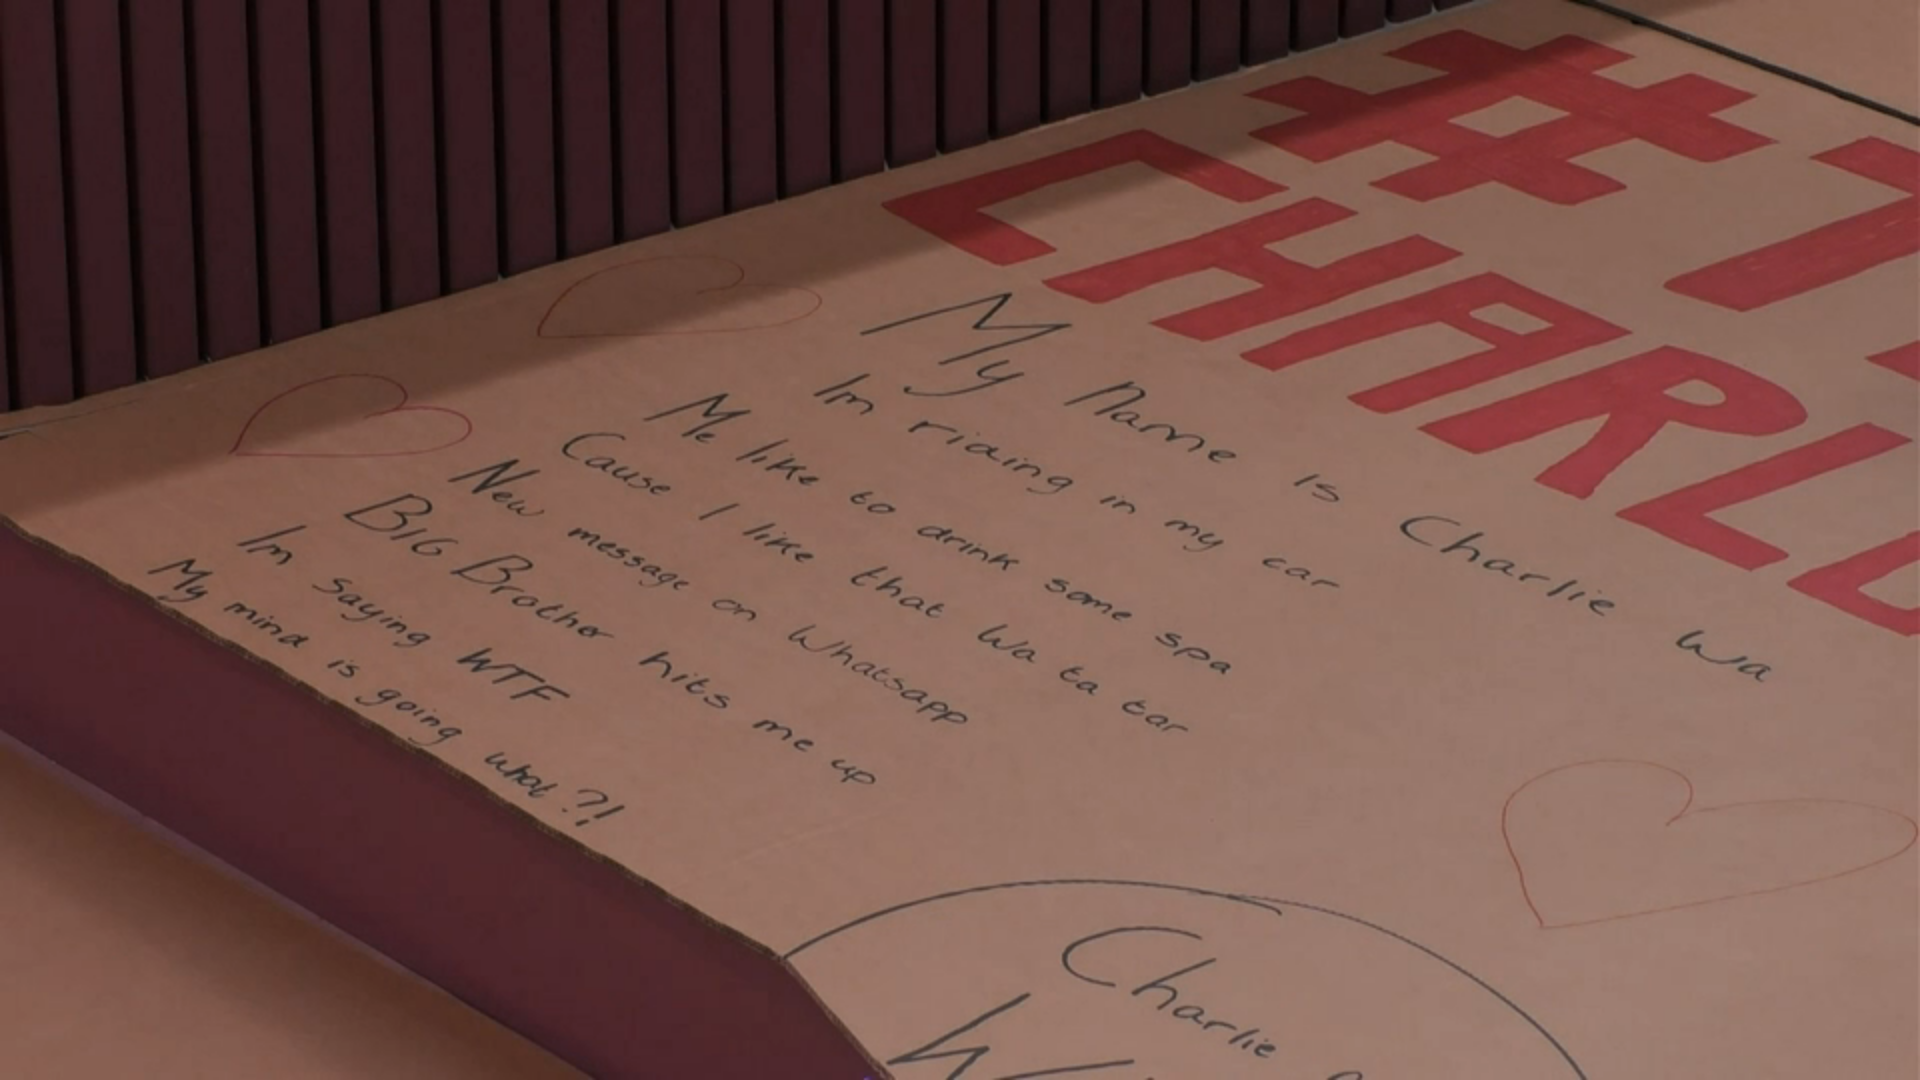 #T
CHARL
My name is Charlie Wa
Im riding in my car
Me like to drink some spa
Cause I like that wa ta tar
New message on Whatsapp
BIG Brother hits me up
Im saying WTF
My mind is going what?!
Charlie